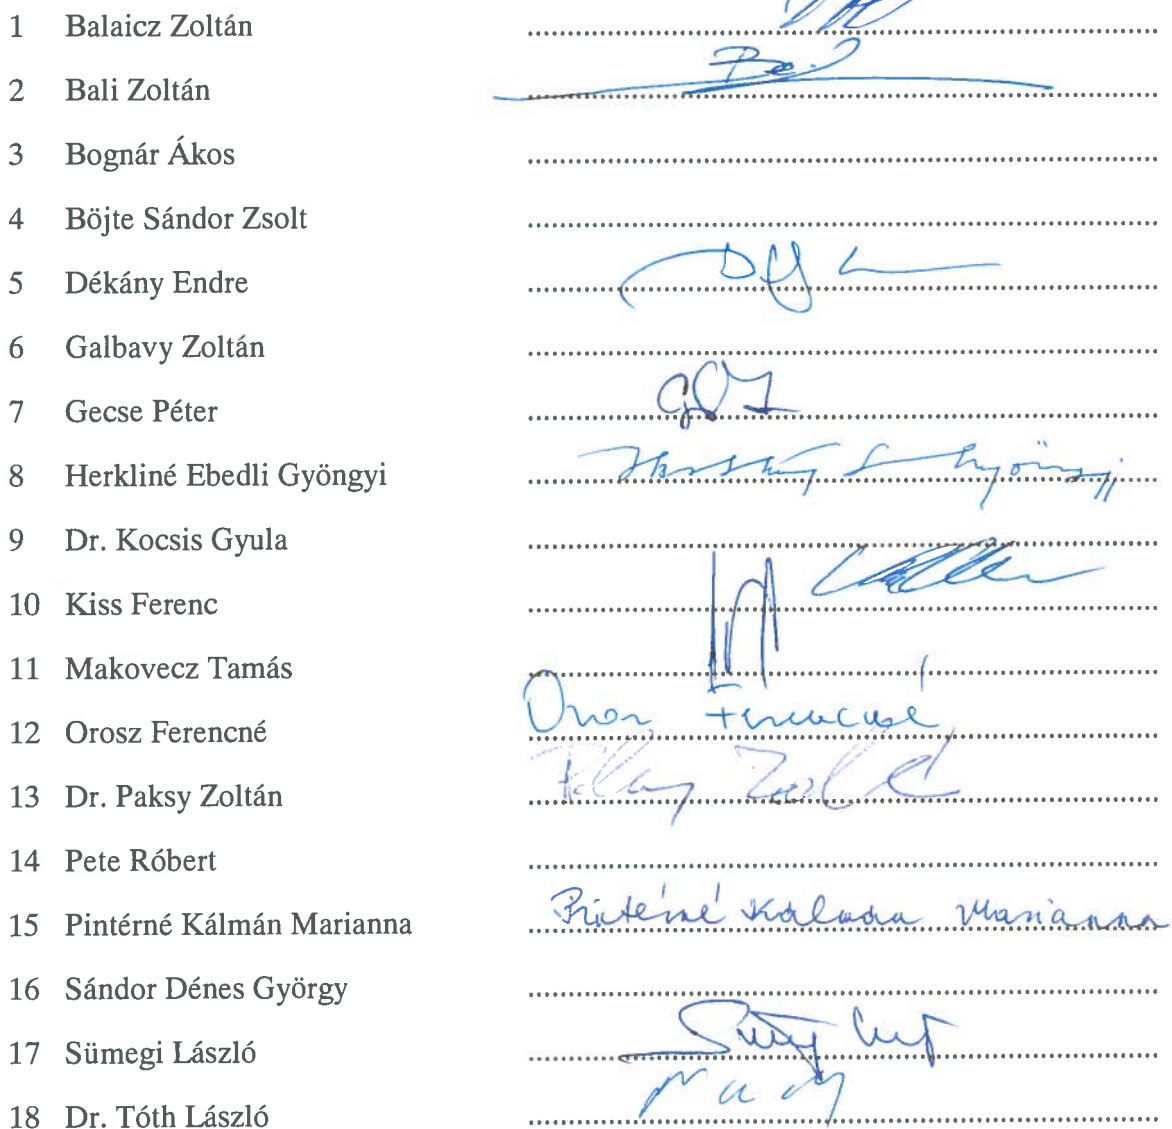 1 Balaicz Zoltán
2 Bali Zoltán
3 Bognár Ákos
4 Böjte Sándor Zsolt
5 Dékány Endre
6 Galbavy Zoltán
7 Gecse Péter
8 Herkliné Ebedli Gyöngyi
9 Dr. Kocsis Gyula
10 Kiss Ferenc
11 Makovecz Tamás
Orosz Ferencné
12 Orosz Ferencné
13 Dr. Paksy Zoltán
14 Pete Róbert
Pintérné Kálmán Marianna
15 Pintérné Kálmán Marianna
16 Sándor Dénes György
17 Sümegi László
18 Dr. Tóth László